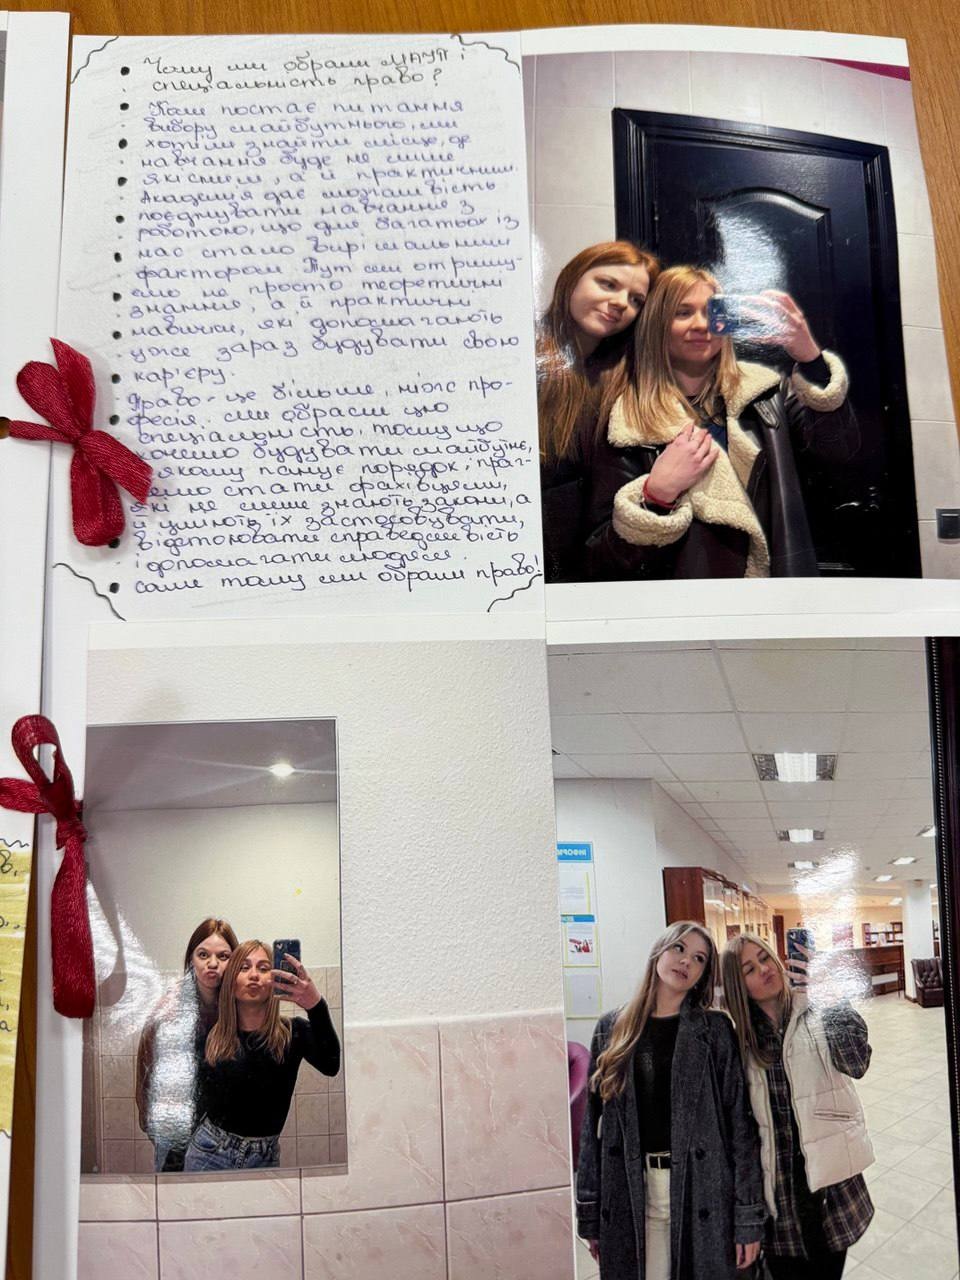 Чому ми обрали МАУП і
спеціальність право?
Коли постає питання
вибору майбутнього, ми
хотіли знайти місце, де
навчання буде не лише
якісним, а й практичним.
Академія дає можливість
поєднувати навчання з
роботою, що для багатьох із
нас стало вирішальним
фактором. Тут ми отриму-
ємо не просто теоретичні
знання, а й практичні
навички, які допомагають
уже зараз будувати свою
кар'єру.
Право - це більше, ніж про-
фесія. Ми обрали цю
спеціальність, тому що
хочемо будувати майбутнє,
в якому панує порядок, праг-
немо стати фахівцями,
які не лише знають закони, а
й уміють їх застосовувати,
відстоювати справедливість
і допомагати людям.
Саме тому ми обрали право!
ІНФОРМ